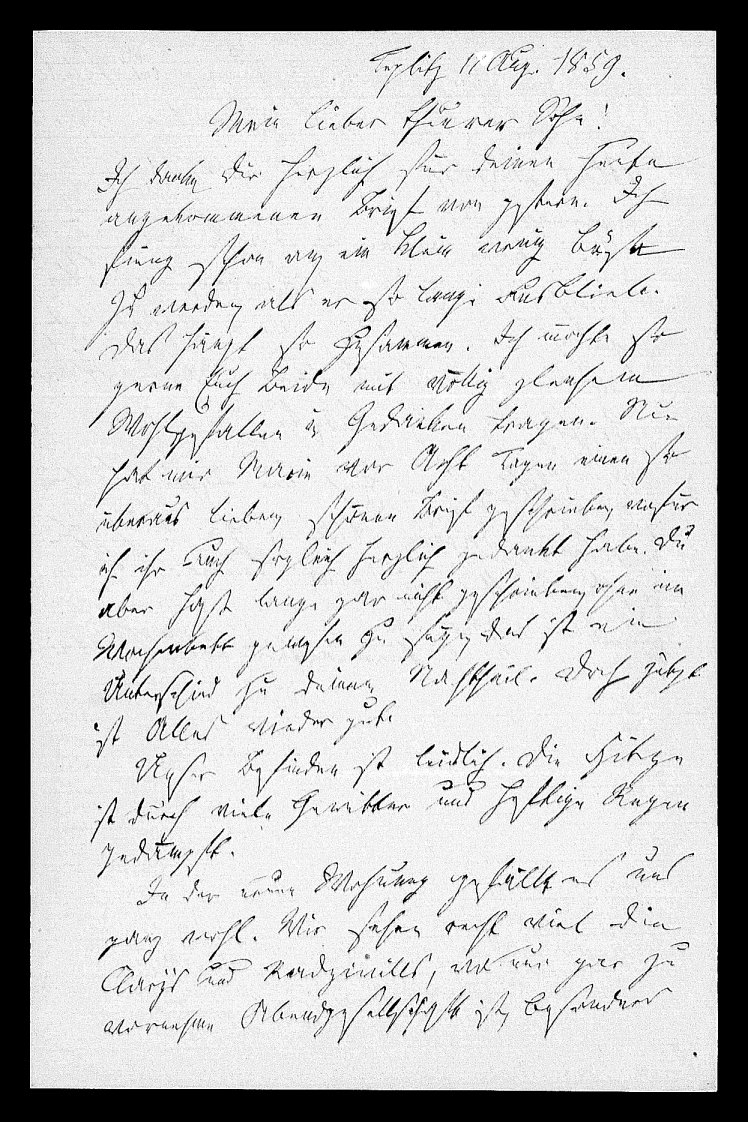 Teplitz 11 Aug. 1859.
Mein lieber theurer Sohn!
Ich danke Dir herzlich für deinen heute
angekommenen Brief von gestern. Ich
fing schon an ein klein wenig böse
zu werden als er so lange ausblieb.
Das hängt so zusammen. Ich möchte so
gerne Euch Beide mit völlig gleichem
Wohlgefallen in Gedanken tragen. Nun
hat mir Marie vor Acht Tagen einen so
überaus lieben schönen Brief geschrieben wofür
ich ihr auch sogleich herzlich gedankt habe. Du
aber hast lange gar nicht geschrieben ohne im
Wochenbett gewesen zu seyn, das ist ein
Unterschied zu deinem Nachtheil. Doch jetzt
ist Alles wieder gut.
Unser Befinden ist leidlich. Die Hitze
ist durch viele Gewitter und heftige Regen
gedämpft.
In der neuen Wohnung gefällt es uns
ganz wohl. Wir sehen recht viel die
Clarys und Radziwills, wo nur gar zu
vornehme Abendgesellschaft ist, besonders